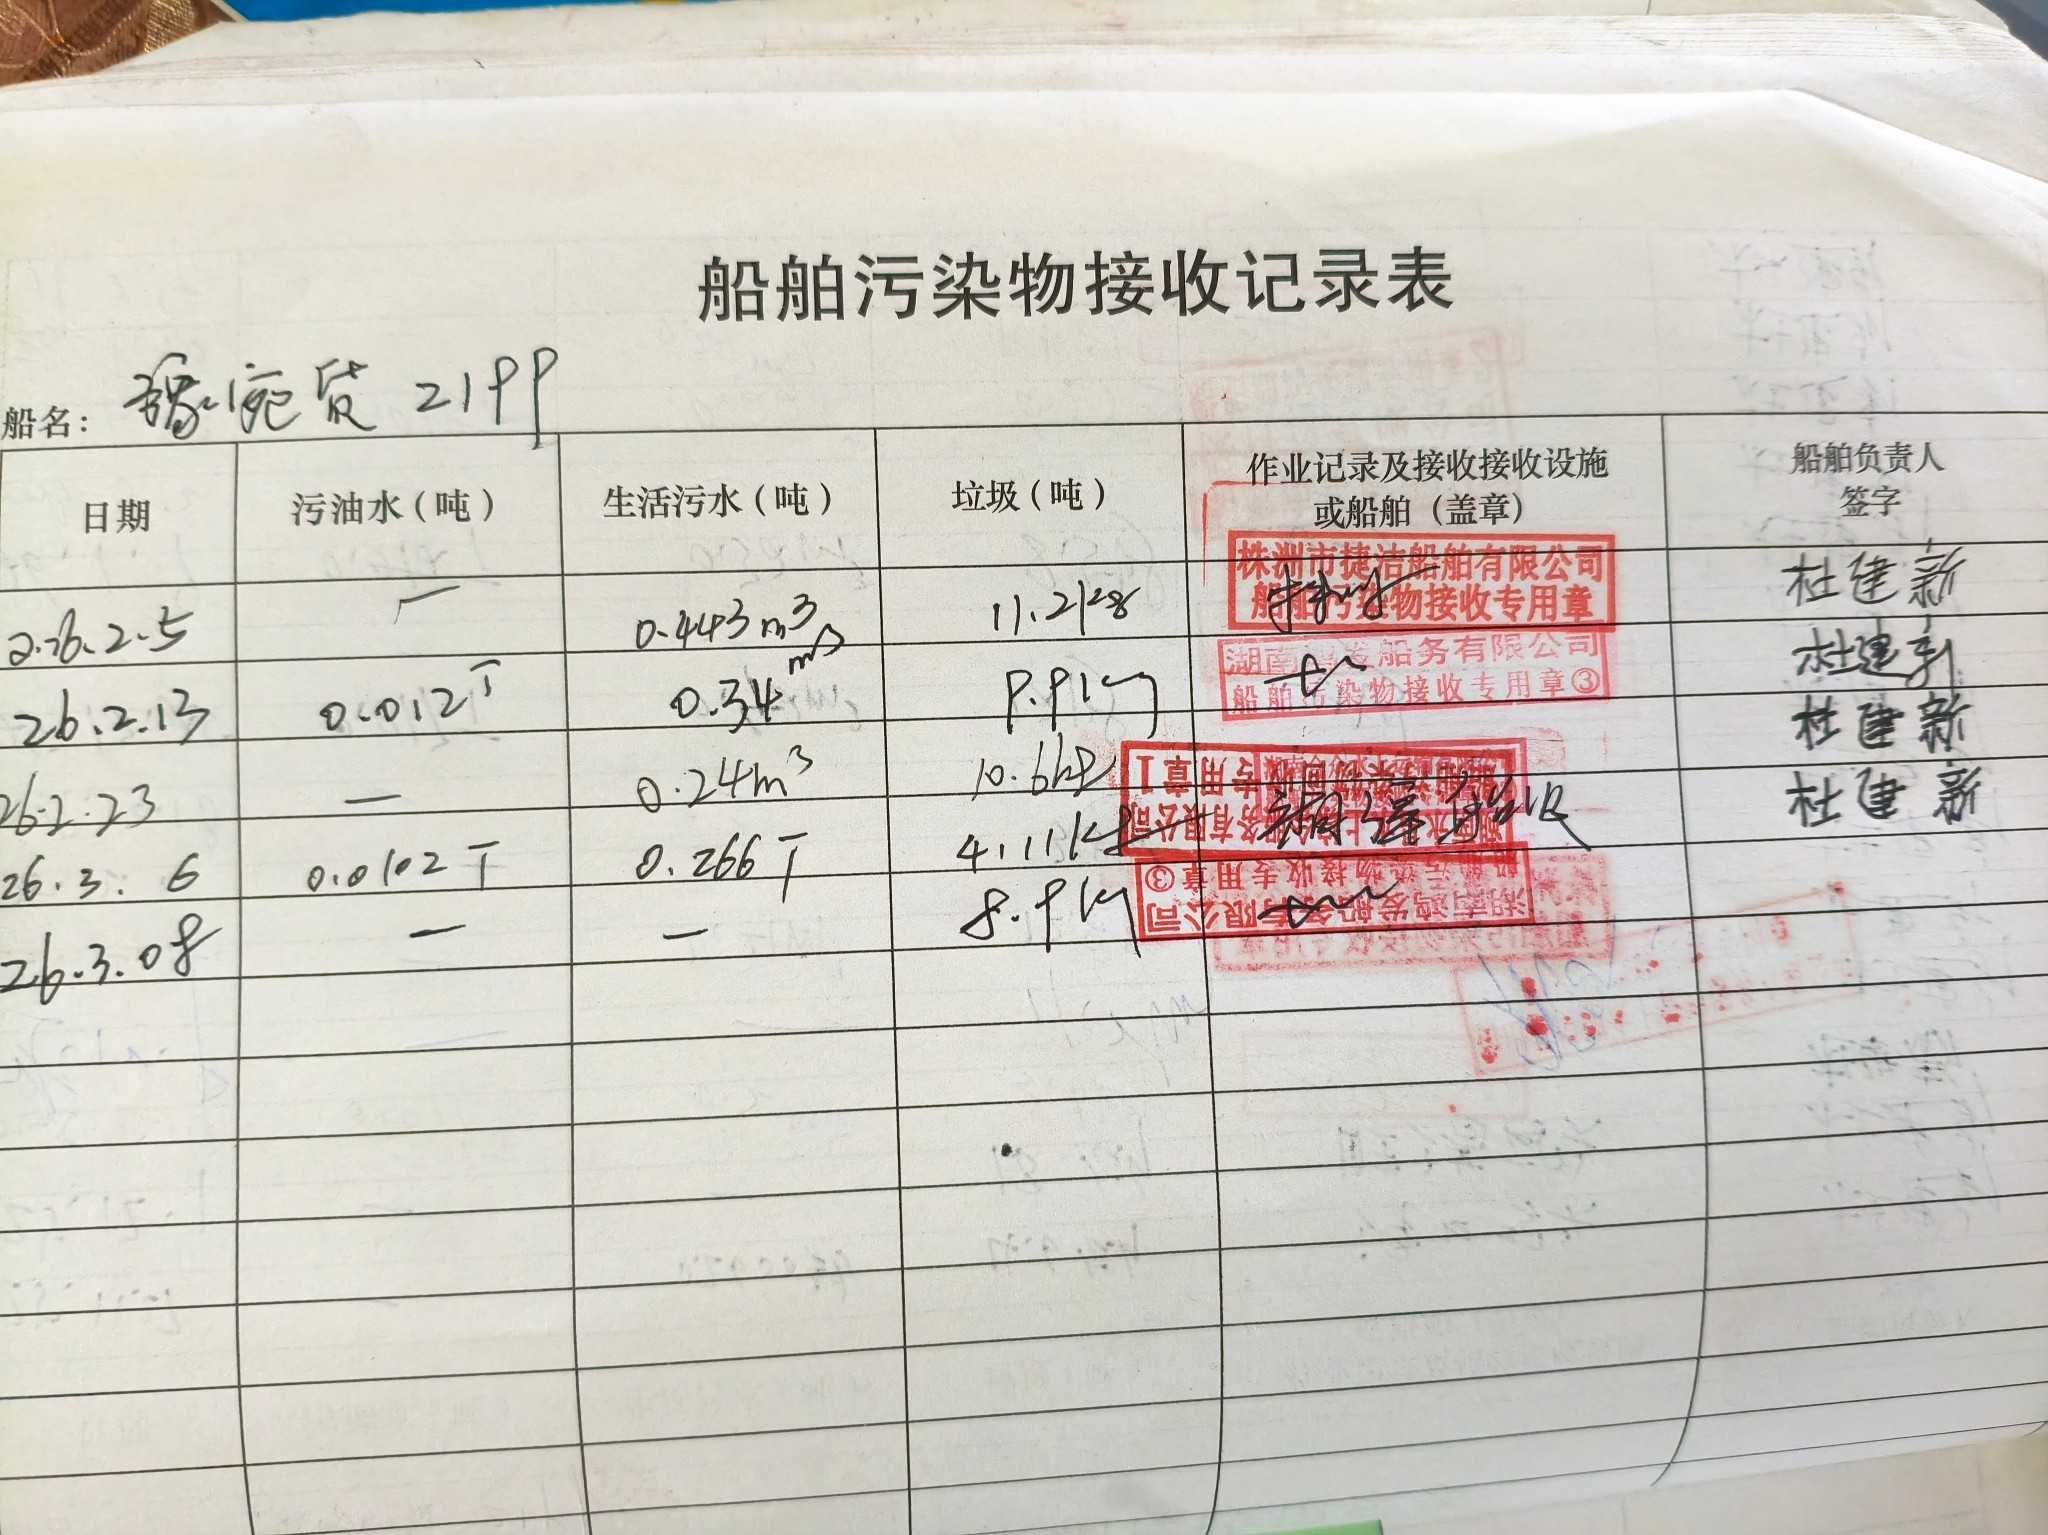 船舶污染物接收记录表
船名: 豫宛货 2199
日期 污油水(吨) 生活污水(吨) 垃圾(吨) 作业记录及接收接收设施或船舶(盖章) 船舶负责人签字
株洲市捷洁船舶有限公司
船舶污染物接收专用章
26.2.5 — 0.443m³ 11.2kg 杜建新
湖南 发船务有限公司
船舶污染物接收专用章③
26.2.13 0.012T 0.34m³ 9.91kg 杜建新
26.2.23 — 0.24m³ 10.6kg 杜建新
26.3.6 0.0102T 0.266T 4.11kg 杜建新
26.3.08 — — 8.9kg
湖南鸿发船务有限公司
船舶污染物接收专用章③